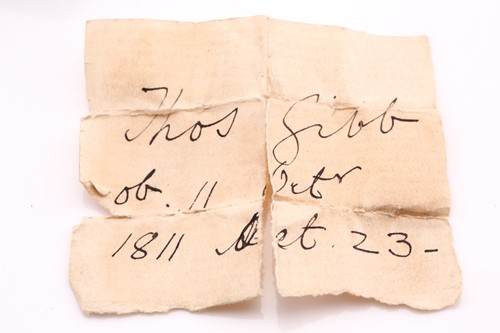 Thos Gibb
ob. 11 Octr
1811 Aet. 23-